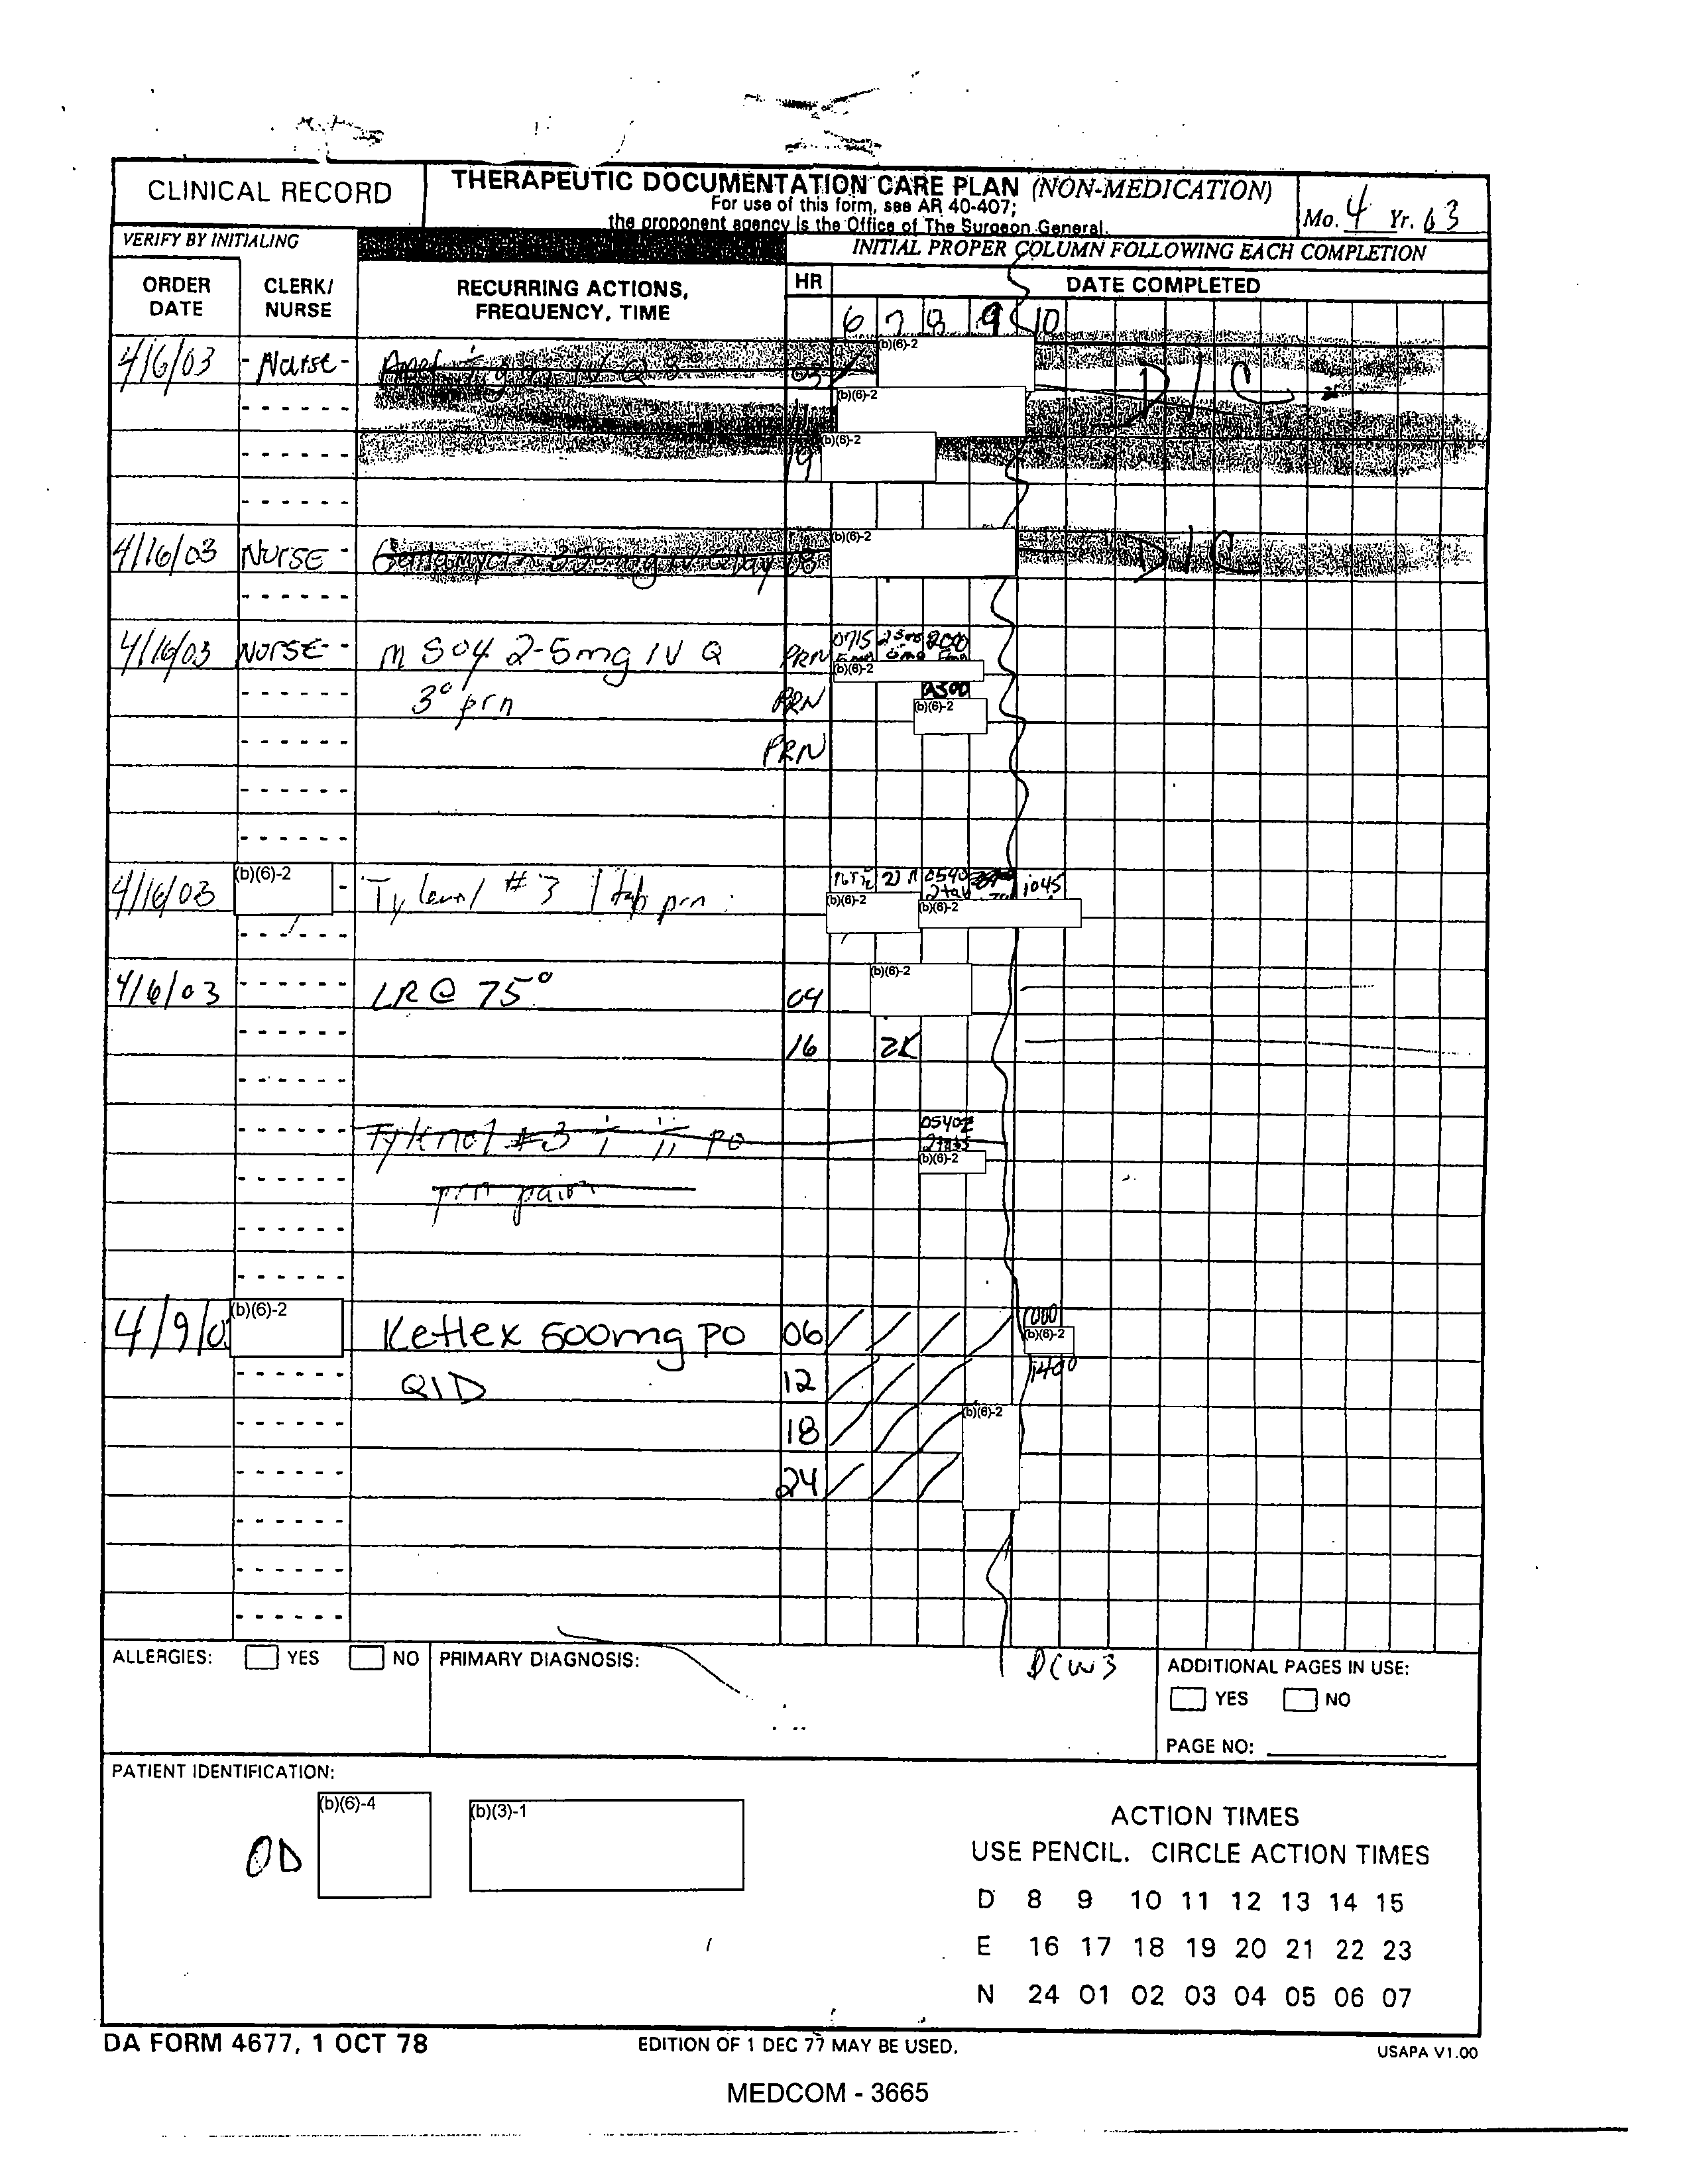 CLINICAL RECORD
THERAPEUTIC DOCUMENTATION CARE PLAN (NON-MEDICATION)
For use of this form, see AR 40-407;
the proponent agency is the Office of The Surgeon General.
Mo. 4 Yr. 03
VERIFY BY INITIALING
INITIAL PROPER COLUMN FOLLOWING EACH COMPLETION
ORDER DATE
CLERK/ NURSE
RECURRING ACTIONS, FREQUENCY, TIME
HR
DATE COMPLETED
6 7 8 9 10
4/6/03 Nurse 03 (b)(6)-2 D/C
(b)(6)-2
19 (b)(6)-2
4/16/03 NURSE Gentamycin 350mg IV Q day 18 (b)(6)-2 D/C
4/16/03 NURSE MSO4 2-5mg IV Q PRN 0715 2300 200
(b)(6)-2
3° prn PRN 2300
(b)(6)-2
PRN
4/16/03 (b)(6)-2 Tylenol #3 1 tab prn 0540 1045
2tab
(b)(6)-2 (b)(6)-2
4/6/03 LR @ 75° 04 (b)(6)-2
16 2K
Tylenol #3 i ii PO 0540
2tabs
prn pain (b)(6)-2
4/9/0 (b)(6)-2 Keflex 500mg PO 06 1000
(b)(6)-2
QID 12 1400
18 (b)(6)-2
24
ALLERGIES: YES NO
PRIMARY DIAGNOSIS:
ADDITIONAL PAGES IN USE:
YES NO
PAGE NO:
PATIENT IDENTIFICATION:
(b)(6)-4 (b)(3)-1
OD
ACTION TIMES
USE PENCIL. CIRCLE ACTION TIMES
D 8 9 10 11 12 13 14 15
E 16 17 18 19 20 21 22 23
N 24 01 02 03 04 05 06 07
DA FORM 4677, 1 OCT 78
EDITION OF 1 DEC 77 MAY BE USED.
USAPA V1.00
MEDCOM - 3665